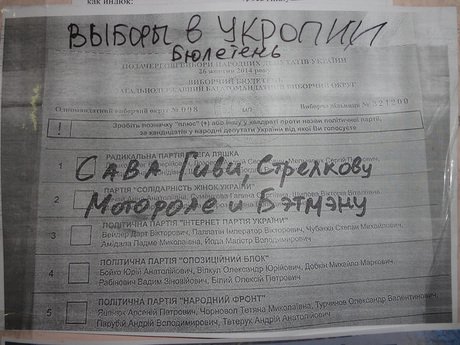 как индюк:
ВЫБОРЫ В УКРОПИИ
Бюлетень
ПОЗАЧЕРГОВІ ВИБОРИ НАРОДНИХ ДЕПУТАТІВ УКРАЇНИ
26 жовтня 2014 року
ВИБОРЧИЙ БЮЛЕТЕНЬ
ЗАГАЛЬНОДЕРЖАВНИЙ БАГАТОМАНДАТНИЙ ВИБОРЧИЙ ОКРУГ
Одномандатний виборчий округ № 098 Виборча дільниця № 321209
! Зробіть позначку "плюс" (+) або іншу у квадраті проти назви політичної партії,
за кандидатів у народні депутати України від якої Ви голосуєте
1 РАДИКАЛЬНА ПАРТІЯ ОЛЕГА ЛЯШКА
САВА Гиви, Стрелкову
2 ПАРТІЯ "СОЛІДАРНІСТЬ ЖІНОК УКРАЇНИ"
Мотороле и Бэтмэну
3 ПОЛІТИЧНА ПАРТІЯ "ІНТЕРНЕТ ПАРТІЯ УКРАЇНИ"
Вейдер Дарт Вікторович, Палпатін Імператор Вікторович, Чубакка Степан Михайлович,
Амідала Падме Миколаївна, Йода Магістр Володимирович
4 ПОЛІТИЧНА ПАРТІЯ "ОПОЗИЦІЙНИЙ БЛОК"
Бойко Юрій Анатолійович, Вілкул Олександр Юрійович, Добкін Михайло Маркович,
Рабінович Вадим Зіновійович, Білий Олексій Петрович
5 ПОЛІТИЧНА ПАРТІЯ "НАРОДНИЙ ФРОНТ"
Яценюк Арсеній Петрович, Чорновол Тетяна Миколаївна, Турчинов Олександр Валентинович,
Парубій Андрій Володимирович, Тетерук Андрій Анатолійович